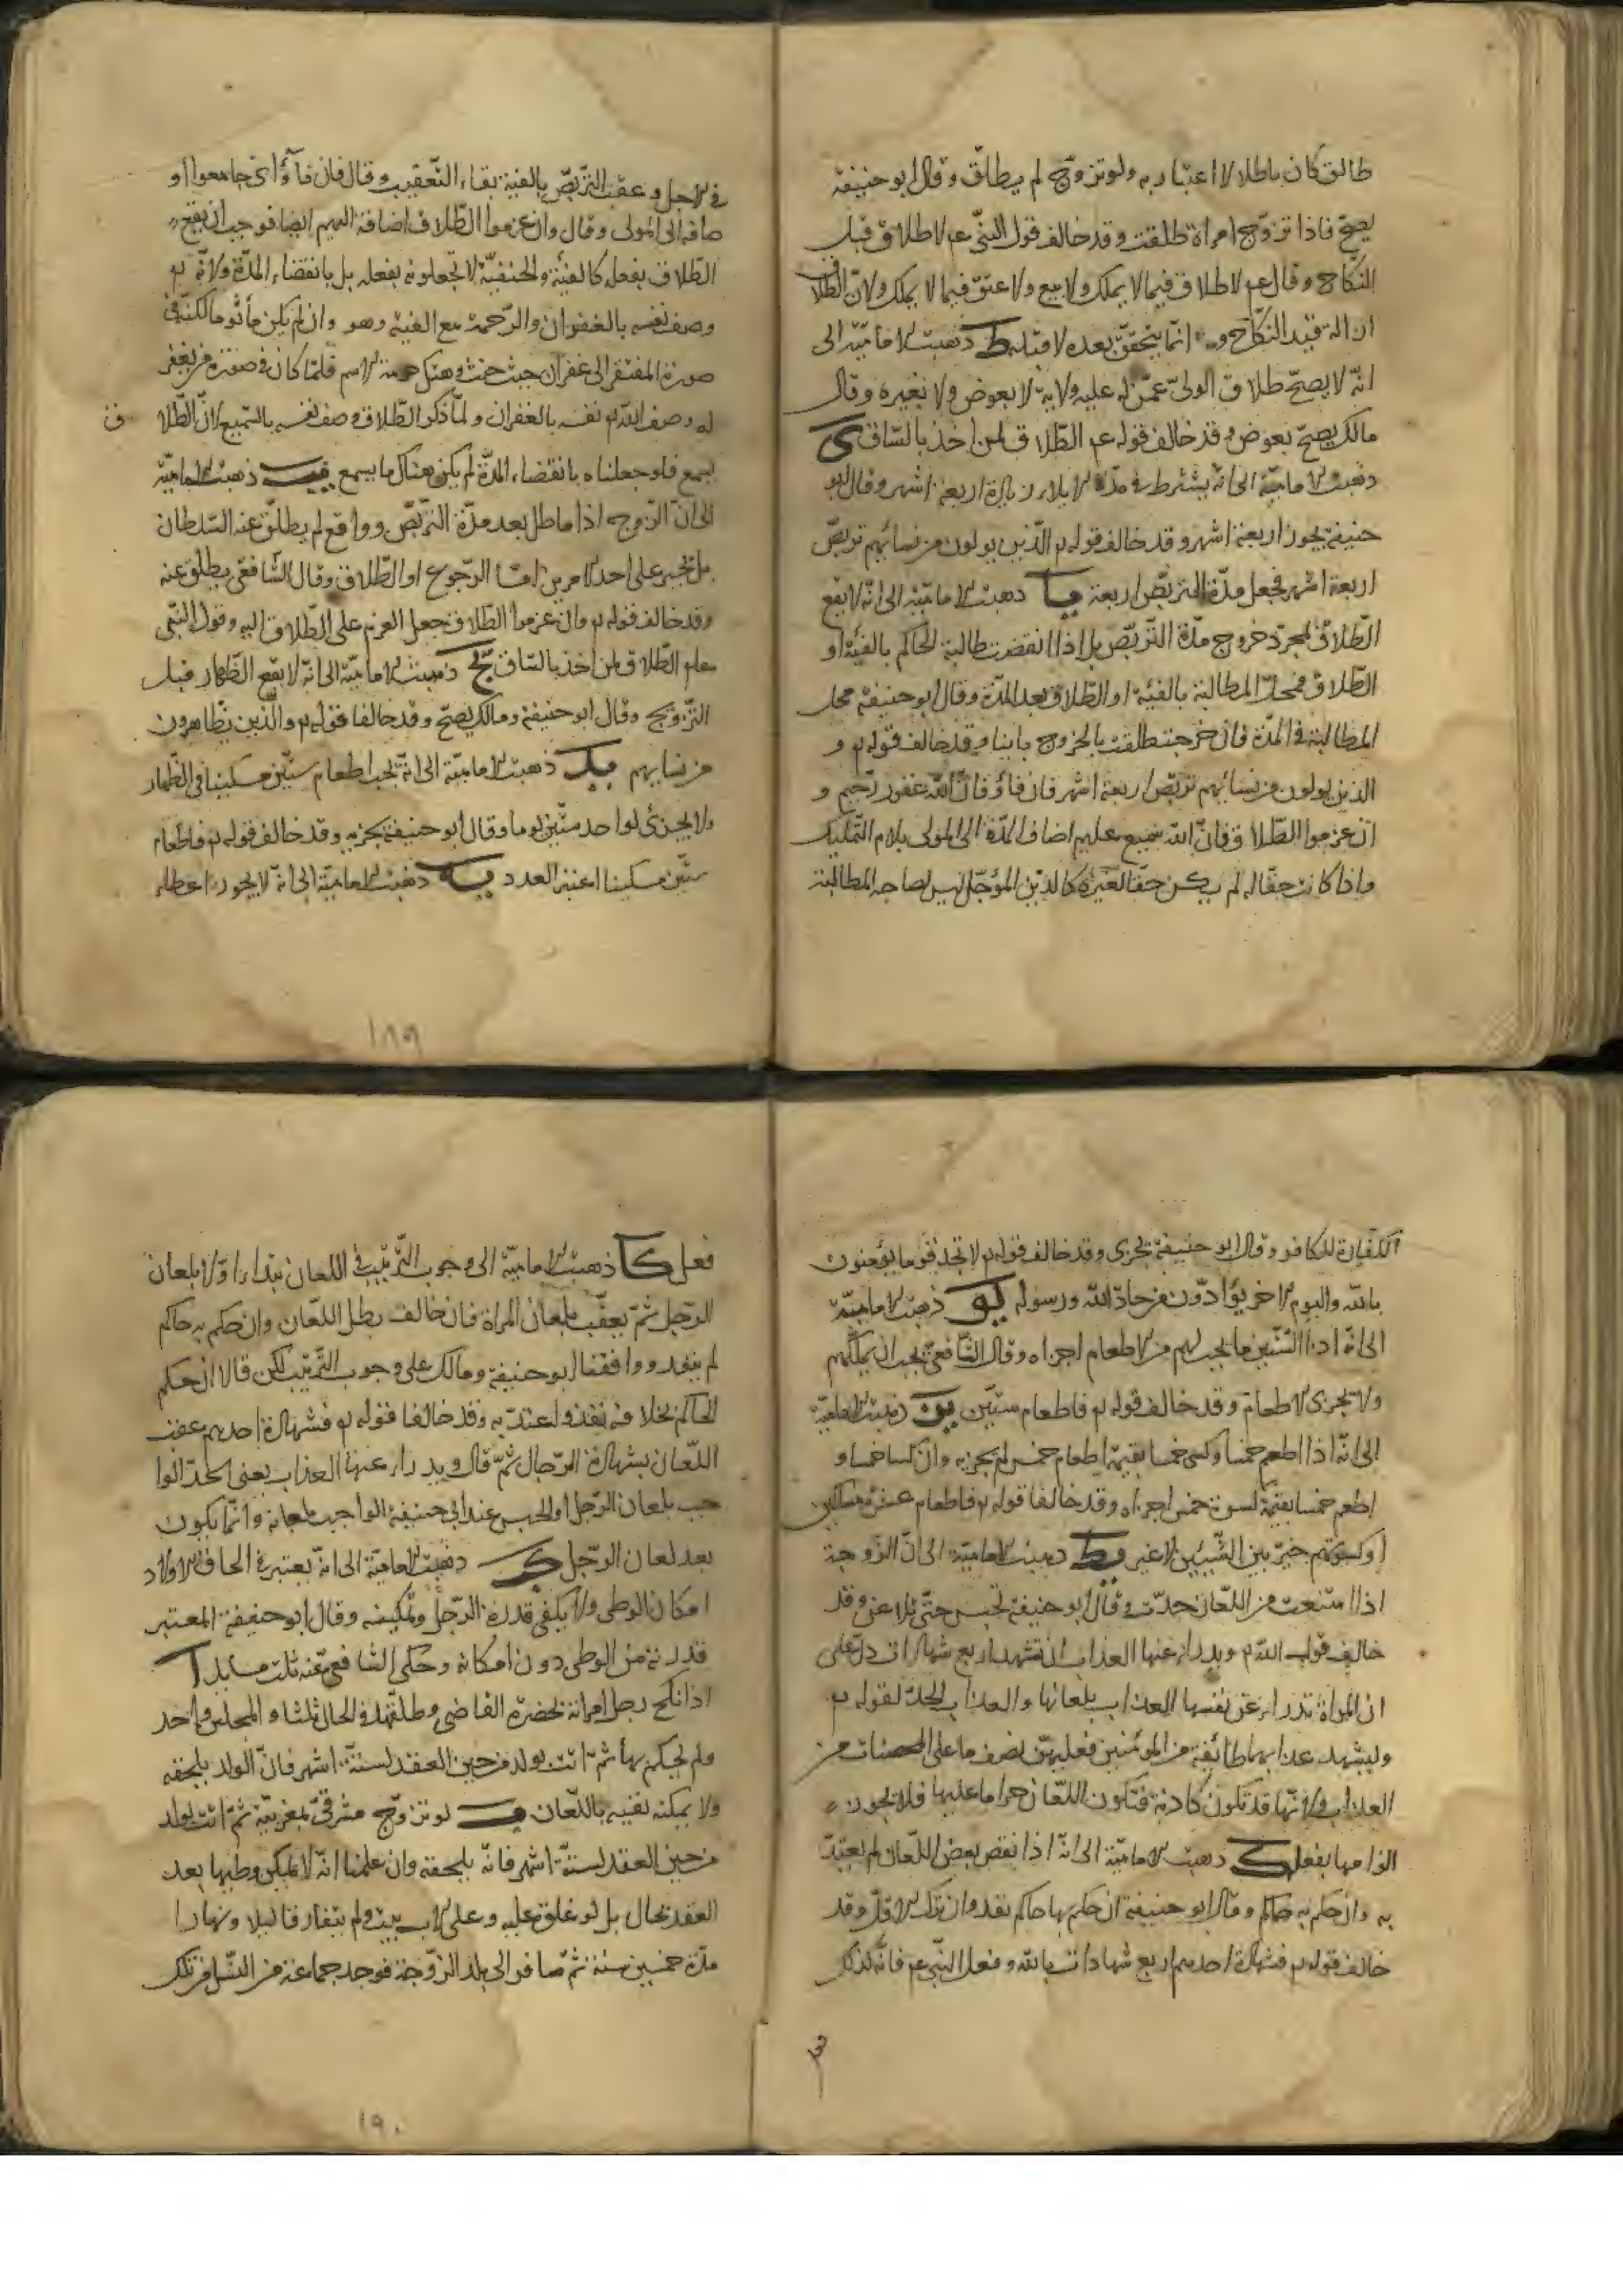 طالق كان باطلا لا اعتبار به ولو تزوّج لم يطلّق وقال ابو حنيفة
يصحّ فاذا تزوّج امراة طلقت وقد خالف قول النبىّ عم لا طلاق قبل
النّكاح وقال عم لا طلاق فيما لا يملك ولا بيع ولا عتق فيما لا يملك ولانّ الطّلاق
ازالة قيد النّكاح و انّما يتحقّق بعده لا قبله ط ذهبت الاماميّة الى
انّه لا يصحّ طلاق الولىّ عمّن له عليه ولاية لا بعوض ولا بغيره وقال
مالك يصحّ بعوض وقد خالف قوله عم الطّلاق لمن اخذ بالسّاق ى
ذهبت الاماميّة الى انّه يشترط فى مدّة الايلاء زيادة اربعة اشهر وقال ابو
حنيفة يجوز اربعة اشهر وقد خالف قوله تم الّذين يولون من نسائهم تربّص
اربعة اشهر فجعل مدّة التربّص اربعة يا ذهبت الاماميّة الى انّه لا يقع
الطّلاق لمجرّد خروج مدّة التّربّص بل اذا انقضت طالبة الحاكم بالفئة او
الطّلاق فمحلّ المطالبة بالفئة او الطّلاق بعد المدّة وقال ابو حنيفة محل
المطالبة فى المدّة فان خرجت طلقت بالخروج باينا وقد خالف قوله تم و
الذين يولون من نسائهم تربّص اربعة اشهر فان فاؤ فانّ اللّه غفور رّحيم و
ان عزموا الطّلاق فانّ اللّه سميع عليم اضاف المدّة الى المولى بلام التّمليك
واذا كانت حقّا له لم يكن حقّا لغيره كالدّين المؤجّل ليس لصاحبه المطالبة
فى الاجل وعقّب التربّص بالفئة بفاء التّعقيب وقال فان فآؤ اى جامعوا او
ضافه الى المولى وقال وان عزموا الطّلاق اضافة اليهم ايضا فوجب ان يقع
الطّلاق بفعله كالفئة والحنفيّة لا تجعلونه بفعله بل بانقضاء المدّة ولانّه تم
وصف نفسه بالغفران والرّحمة مع الفئة وهو وان لم يكن مأثوما لكنّه فى
صورة المفتقر الى غفران حيث حنث وهتك حرمة الاسم فلمّا كان فى صورة من يغفر
له وصف اللّه تم نفسه بالغفران ولمّا ذكر الطّلاق وصف نفسه بالسّميع لانّ الطّلا
ق
يسمع فلو جعلناه بانقضاء المدّة لم يكن هناك ما يسمع يب ذهبت الاماميّة
الى انّ الزّوج اذا ماطل بعد مدّة التّربّص ووافع لم يطلّق عنه السّلطان
بل يجبر على احد الامرين امّا الرّجوع او الطّلاق وقال الشّافعى يطلق عنه
وقد خالف قوله تم وان عزموا الطّلاق فجعل العزم على الطّلاق اليه وقول النّبى
صلعم الطّلاق لمن اخذ بالسّاق يج ذهبت الاماميّة الى انّه لا يقع الظّهار قبل
التّزوّج وقال ابو حنيفة ومالك يصحّ وقد خالفا قوله تم والّذين يظّاهرون
من نسايهم يد ذهبت الاماميّة الى انّه يجب اطعام ستّين مسكينا فى الظّهار
ولا يجزئ لواحد ستّين يوما وقال ابو حنيفة يجزيه وقد خالف قوله تم فاطعام
ستّين مسكينا اعتبر العدد يه ذهبت الاماميّة الى انّه لا يجوز اعطاء
١٨٩
الكفّارة للكافر وقال ابو حنيفة يجزى وقد خالف قوله تم لا تجد قوما يؤمنون
باللّه واليوم الاخر يؤادّون من حادّ اللّه ورسوله يو ذهبت الاماميّة
الى انّه اذا الستّين ما يجب لهم من الاطعام اجزاه وقال الشّافعى يجب ان يملّكهم
ولا تجزى الاطعام وقد خالف قوله تم فاطعام ستّين يز ذهبت الاماميّة
الى انّه اذا اطعم خمسا وكسى خمسا بقيمة اطعام خمس لم يجزيه وان كسا خمسا و
اطعم خمسا بقيمة كسوة خمس اجزاه وقد خالفا قوله تم فاطعام عشرة مساكين
او كسوتهم خيّر بين الشّيئين لا غير ذهبت الاماميّة الى انّ الزّوجة
اذا امتنعت من اللّعان حدّت وقال ابو حنيفة تحبس حتّى تلاعن وقد
خالف قول اللّه تم ويدراء عنها العذاب ان تشهد اربع شهادات دلّ على
ان المراة تدراء عن نفسها العذاب بلعانها والعذاب الحدّ لقوله تم
وليشهد عذابهما طائفة من المؤمنين فعليهنّ نصف ما على المحصنات من
العذاب ولانّها قد تكون كاذبة فتكون اللّعان حراما عليها فلا يجوز
الزامها بفعله ك ذهبت الاماميّة الى انّه اذا نقص بعض اللّعان لم يعتدّ
به وان حكم به حاكم وقال ابو حنيفة ان حكم بها حاكم نفذ وان ترك الاقلّ وقد
خالف قوله تم فشهادة احدهم اربع شهادات باللّه وفعل النّبى عم فانّه كذلك
فعل كا ذهبت الاماميّة الى وجوب التّرتيب فى اللعان يبتداء اوّلا بلعان
الرّجل ثمّ يعقّب بلعان المراة فان خالف بطل اللّعان وان حكم به حاكم
لم ينفذ ووافقنا ابو حنيفة ومالك على وجوب التّرتيب لكن قالا ان حكم
الحاكم بخلافه نفذ واعتدّ به وقد خالفا قوله تم فشهادة احدهم عقّب
اللّعان بشهادة الرّجال ثمّ قال ويدراء عنها العذاب يعنى الحدّ الوا
جب بلعان الرّجل او الحبس عند ابى حنيفة الواجب بلعانه وانّما يكون
بعد لعان الرّجل كب ذهبت الاماميّة الى انّه يعتبر فى الحاق الاولاد
امكان الوطى ولا يكفى قدرة الرّجل وتمكينه وقال ابو حنيفة المعتبر
قدرته من الوطى دون امكانه وحكى الشّافعى عنه ثلث مسايل ا
اذا نكح رجل امراته بحضرة القاضى وطلّقها فى الحال ثلثا والمجلس واحد
ولم يحكم بها ثمّ اتت بولد من حين العقد لستّة اشهر فانّ الولد يلحقه
ولا يمكنه نفيه باللّعان ب لو تزوّج مشرقىّ بمغربيّة ثمّ اتت بولد
من حين العقد لستّة اشهر فانّه يلحقه وان علمنا انّه لا يمكن وطيها بعد
العقد بحال بل لو غلق عليه وعلى الاب بيت ولم يتفارقا ليلا ونهارا
مدّة خمسين سنة ثمّ سافر الى بلد الزّوجة فوجد جماعة من النّسل من تلك
١٩٠